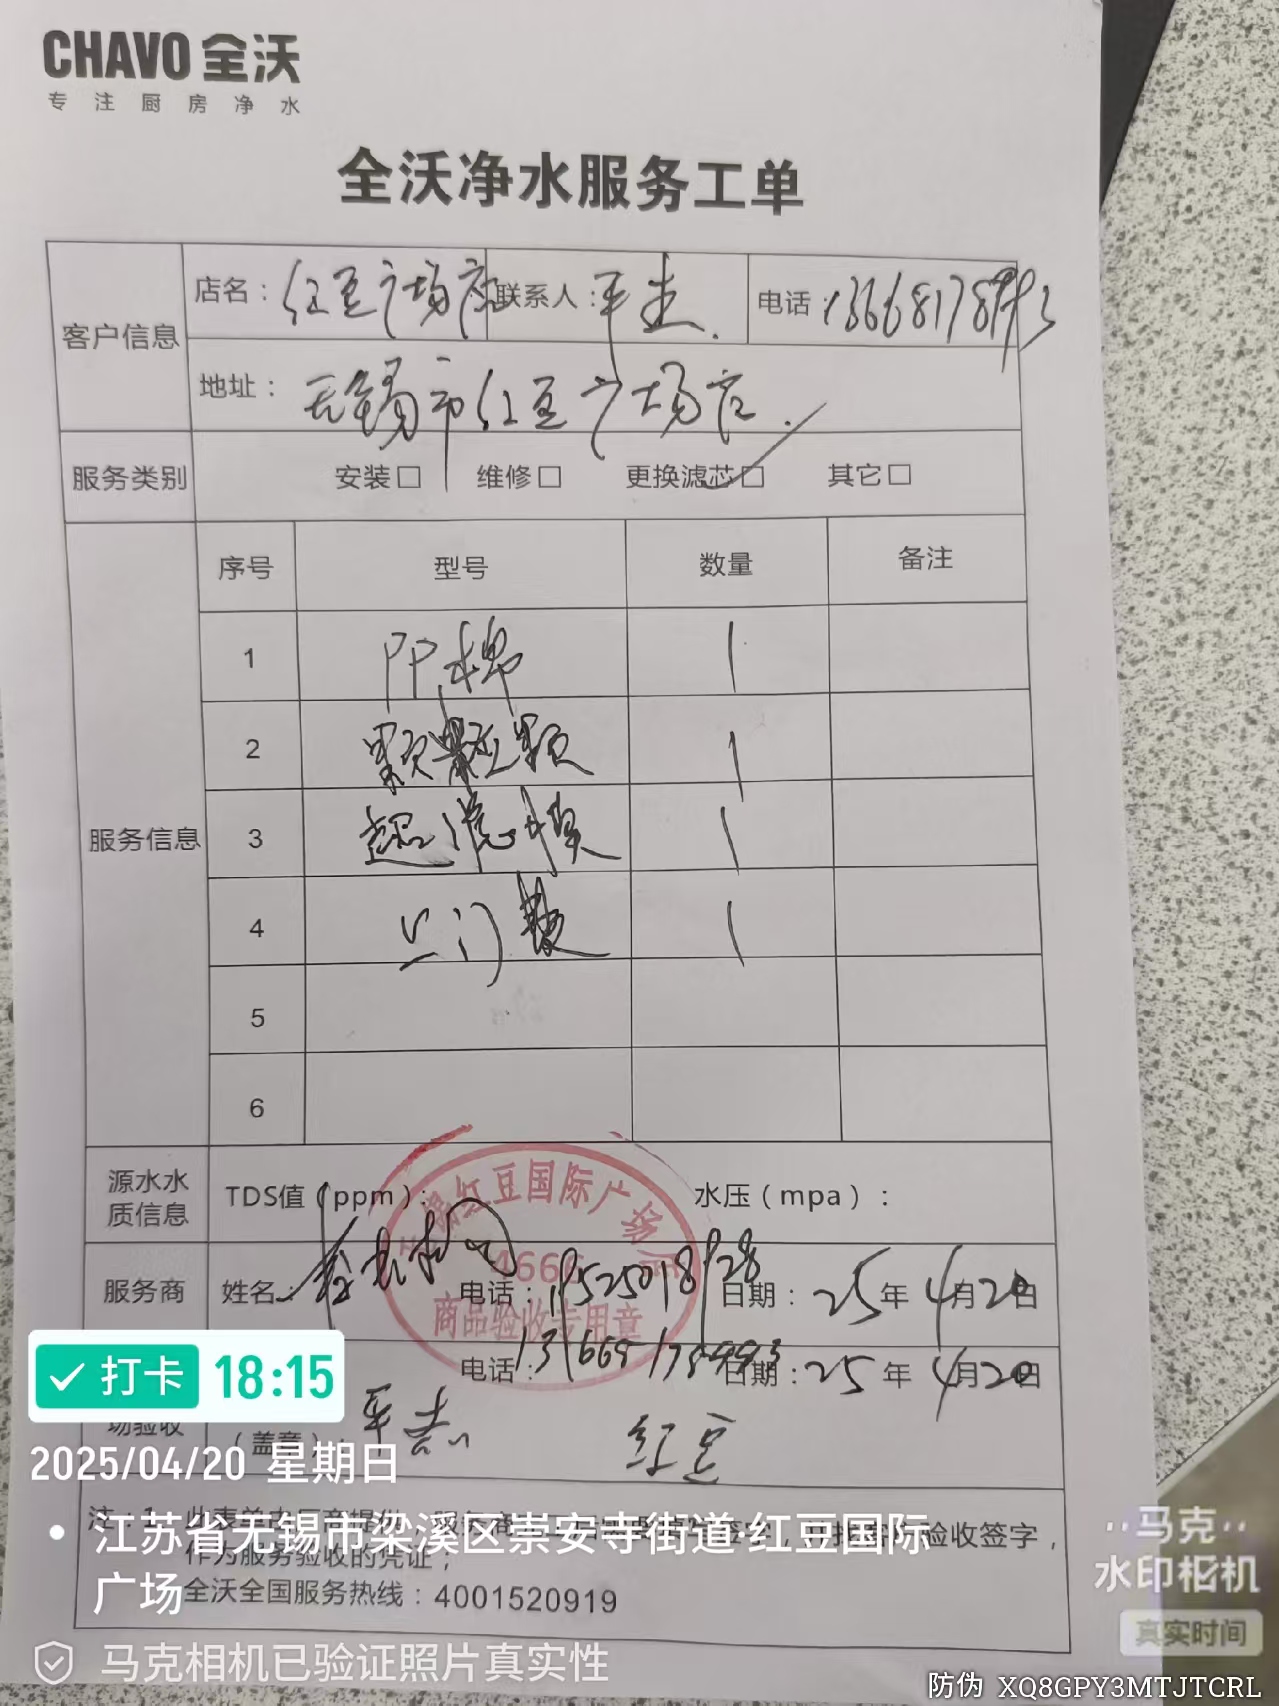 CHAVO 全沃
专注厨房净水
全沃净水服务工单
客户信息 店名：红豆广场店 联系人：平 电话：
地址：无锡市红豆广场店.
服务类别 安装□ 维修□ 更换滤芯□ 其它□
服务信息 序号 型号 数量 备注
1 PP棉 1
2 颗 1
3 超滤膜 1
4 上门费 1
5
6
源水水质信息 TDS值（ppm）： 水压（mpa）：
红豆国际广场店
466
商品验收专用章
服务商 姓名： 电话： 日期：25年4月20日
电话： 日期：25年4月20日
场验收 （盖章）： 平 红豆
作为服务验收的凭证；
全沃全国服务热线：4001520919
打卡 18:15
2025/04/20 星期日
江苏省无锡市梁溪区崇安寺街道·红豆国际
广场
马克相机已验证照片真实性
马克
水印相机
真实时间
防伪 XQ8GPY3MTJTCRL